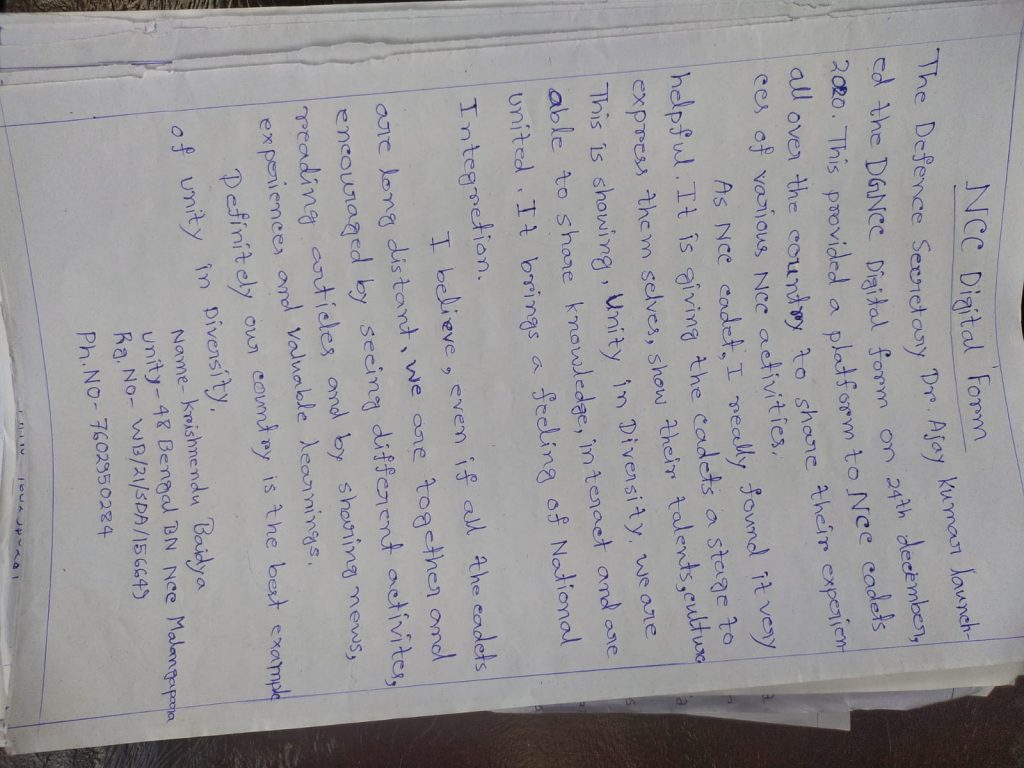 NCC Digital Form
The Defence Secretary Dr. Ajay Kumar launch-
ed the DGNCC Digital form on 24th december,
2020. This provided a platform to NCC cadets
all over the country to share their experien
ces of various NCC activities.
As NCC cadet, I really found it very
helpful. It is giving the cadets a stage to
express them selves, show their talents, culture
This is showing, Unity in Diversity. we are
able to share knowledge, interact and are
united. It brings a feeling of National
Integretion.
I believe, even if all the cadets
are long distant, we are together and
encouraged by seeing different activites,
reading articles and by sharing news,
experiences and valuable learnings.
Definitely our country is the best example
of unity in Diversity.
Name- Krishnendu Baidya
Unity- 48 Bengal BN NCC Malangapara
Rg. No- WB/21/SDA/156649
Ph. NO- 7602950284